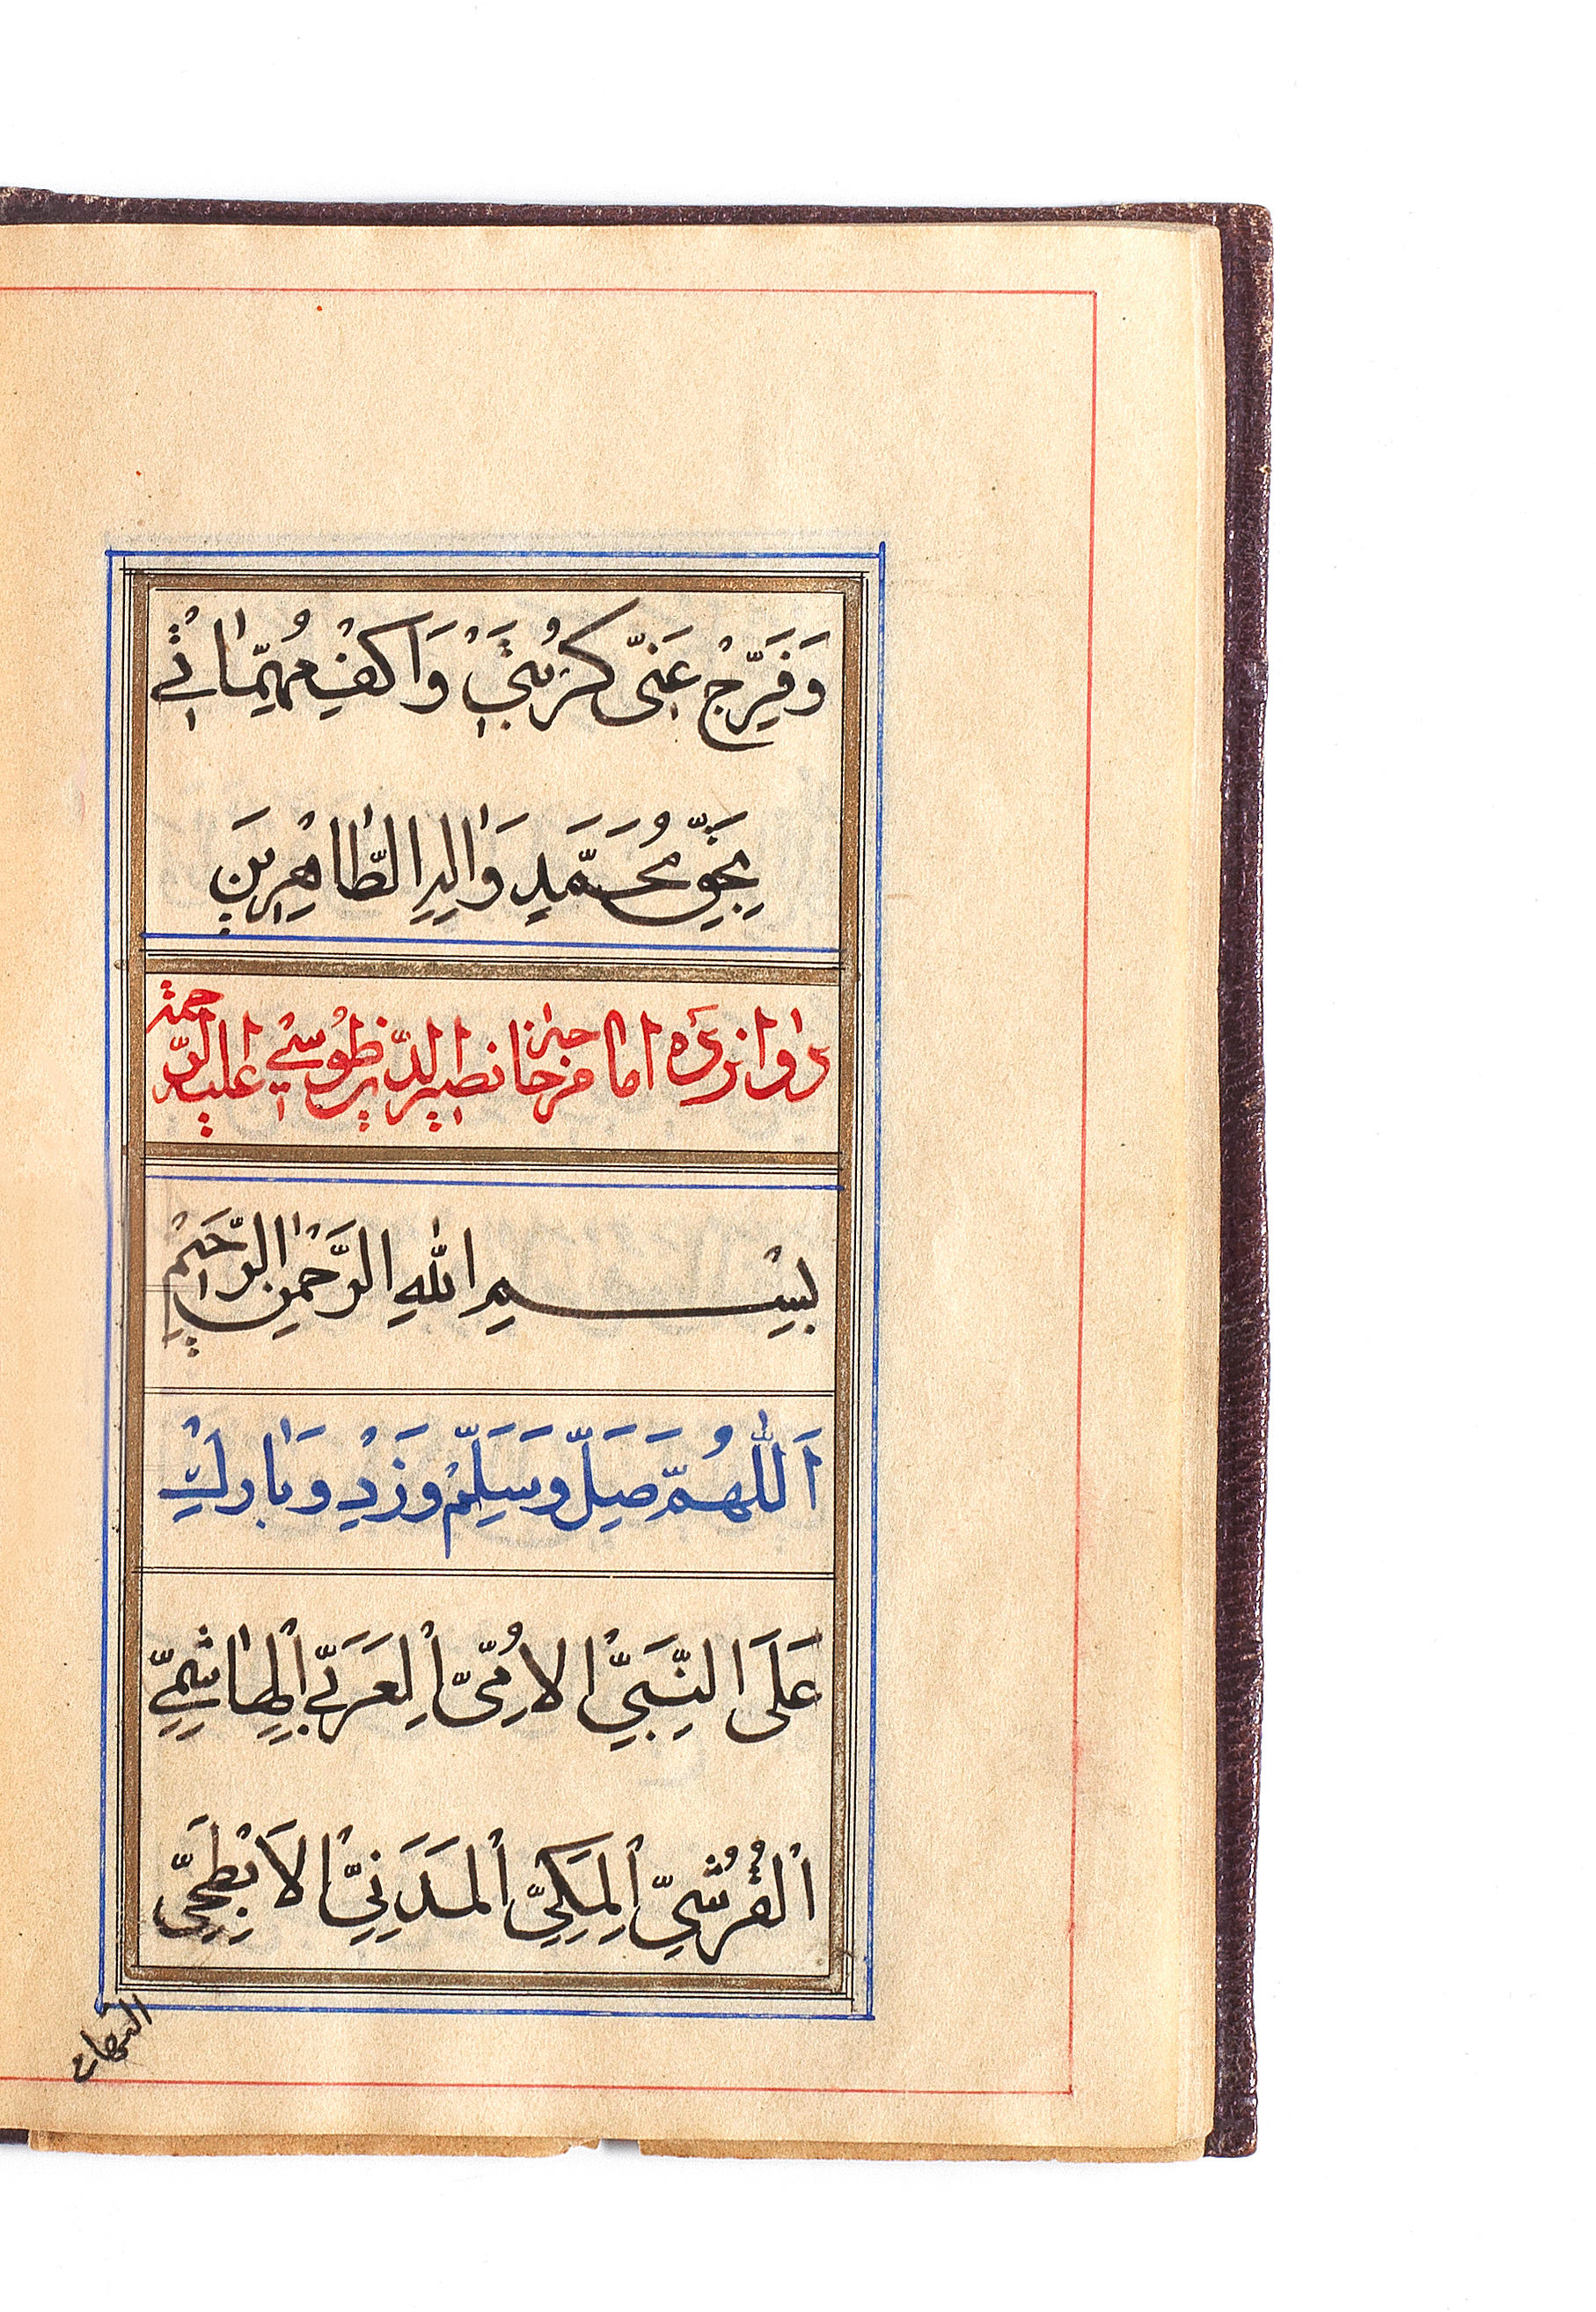 وَفَرِّجْ عَنّى كُرْبَتِيْ وَاكْفِ مُهِمّاتِيْ
بِحَقِّ مُحَمَّدٍ وَالِهِ الطّاهِرِينَ
دوازده امام خواجه نصیرالدین طوسی علیه الرحمة
بِسْمِ اللّٰهِ الرَّحْمٰنِ الرَّحَيْمِ
اَللّٰهُمَّ صَلِّ وَسَلِّمْ وَزِدْ وَبارِكْ
عَلَى النَّبِيِّ الاُمِّىِّ الْعَرَبِيِّ الْهاشِمِيِّ
الْقُرَشِيِّ الْمَكِّيِّ الْمَدَنِيِّ الاَبْطَحِيِّ
التهامی